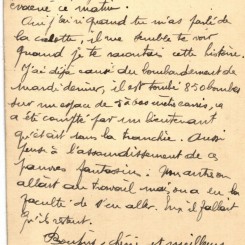 évacué ce matin.
Ami j'ai ri quand tu m'as parlé de
la calotte, il me semble te voir
quand je te racontais cette histoire.
J'ai déjà causé du bombardement de
mardi dernier, il est tombé 850 bombes
sur un espace de carrés, ça
a été compté par un lieutenant
qu'était dans la tranchée. Aussi
pense à l'assourdissement de
pauvres fantassins. Nous autres on
allait au travail mais on a eu la
faculté de s'en aller. Eux il fallait
qu'ils restent.
Bonjour chérie et meilleurs